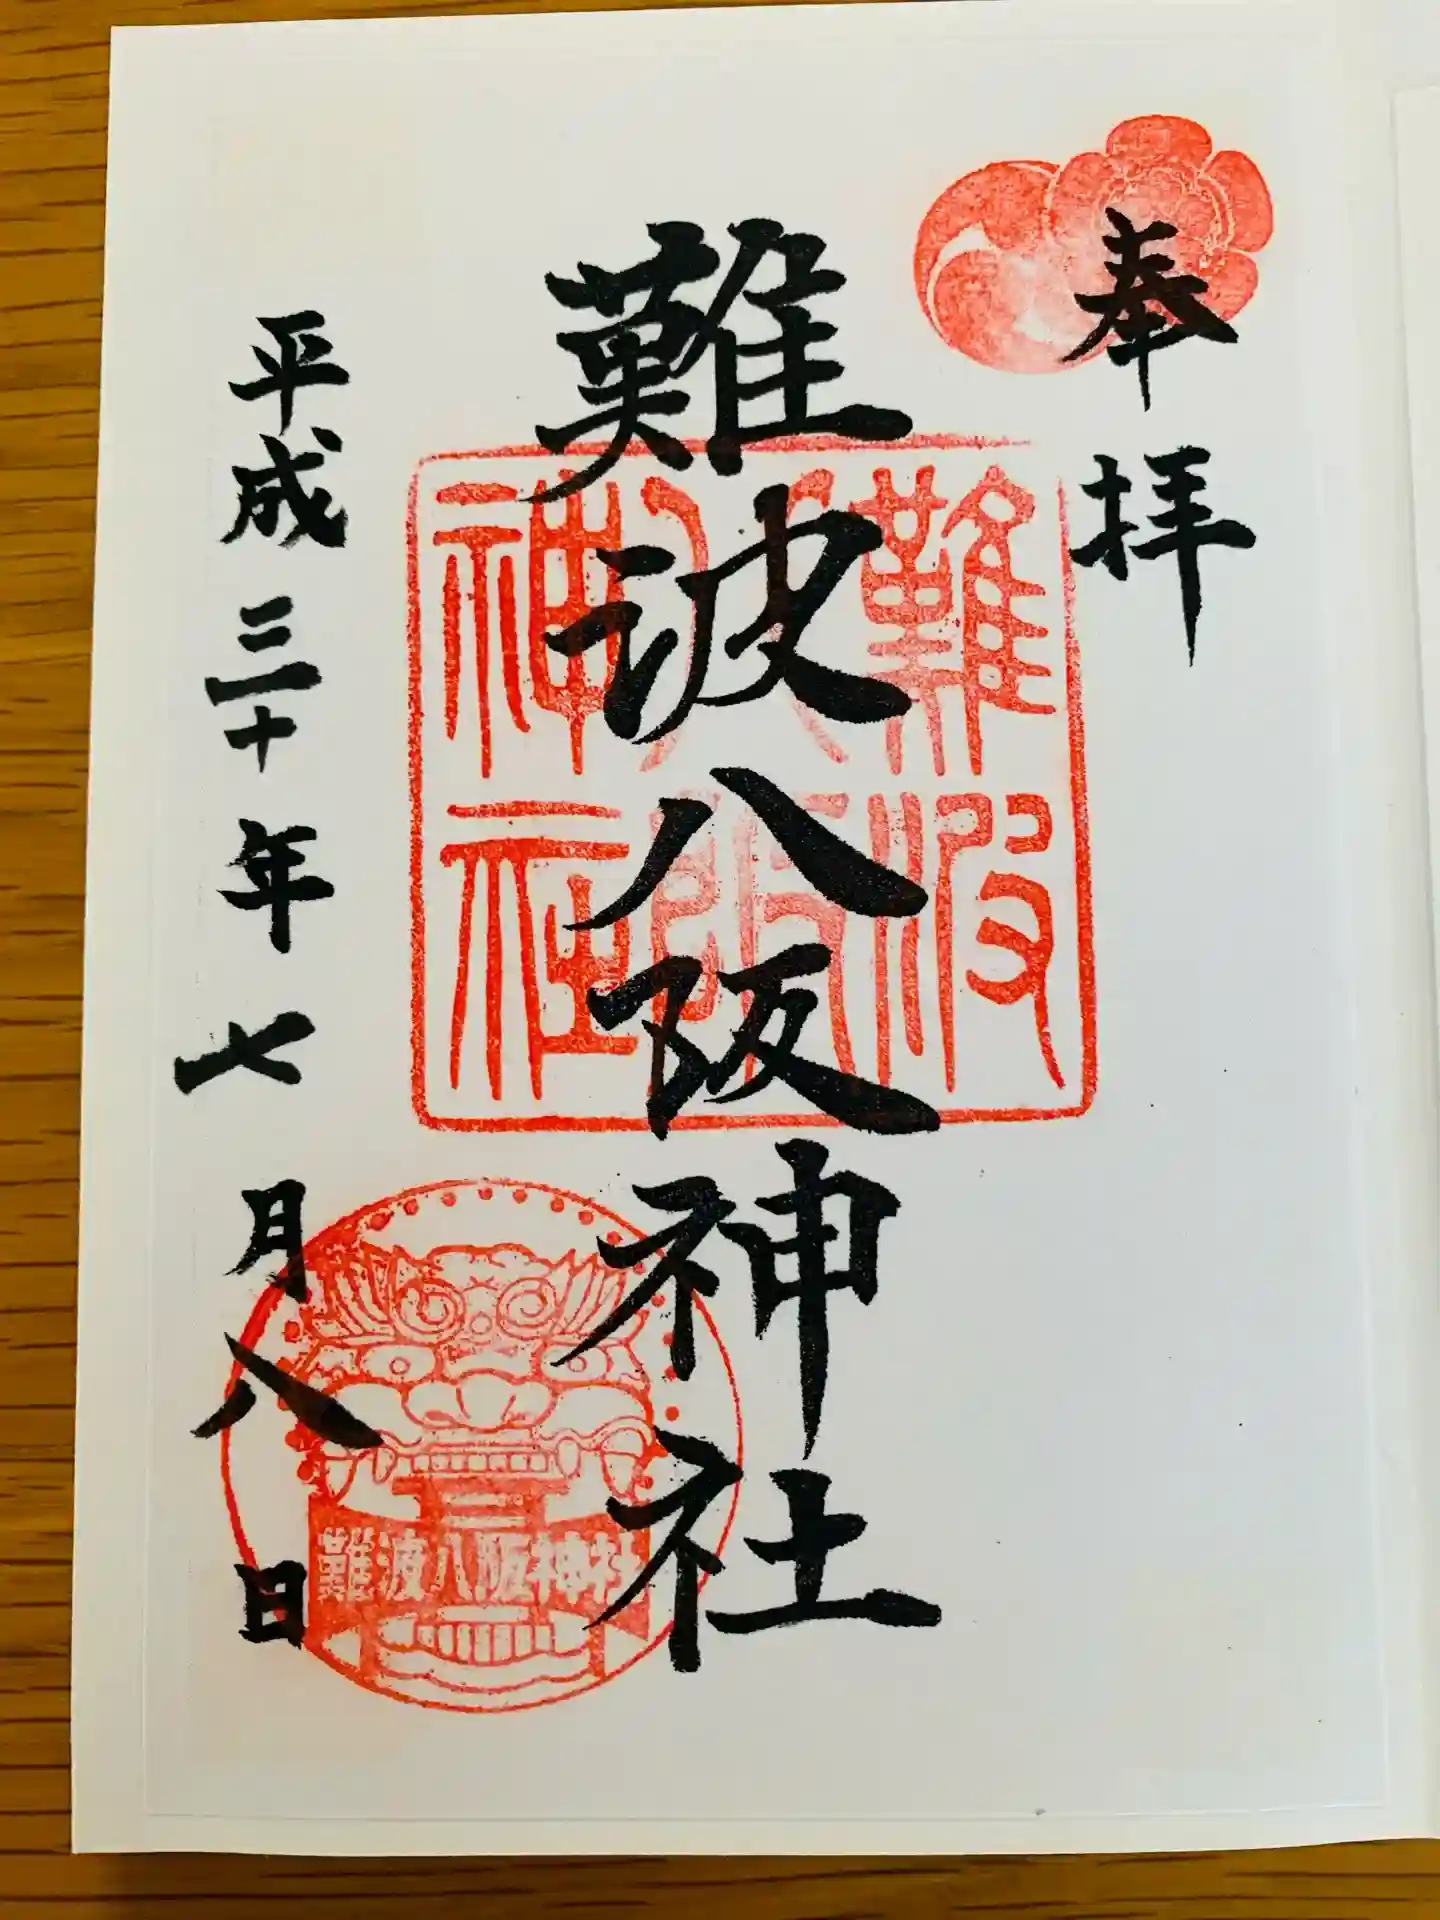 奉拝
難波八阪神社
平成三十年七月八日
難波
八阪
神社
難波八阪神社